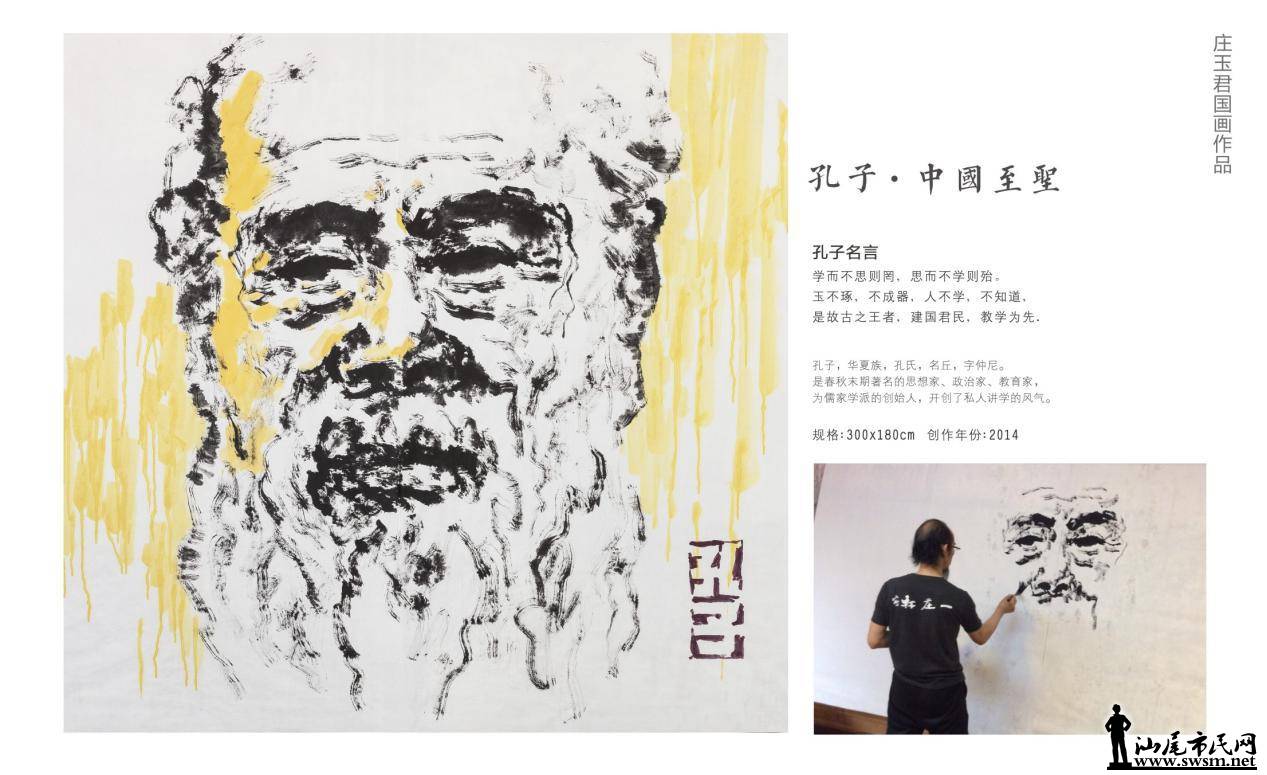 庄玉君国画作品
孔子·中國至聖
孔子名言
学而不思则罔，思而不学则殆。
玉不琢，不成器，人不学，不知道，
是故古之王者，建国君民，教学为先.
孔子，华夏族，孔氏，名丘，字仲尼。
是春秋末期著名的思想家、政治家、教育家，
为儒家学派的创始人，开创了私人讲学的风气。
规格:300x180cm 创作年份:2014
汕尾市民网
www.swsm.net